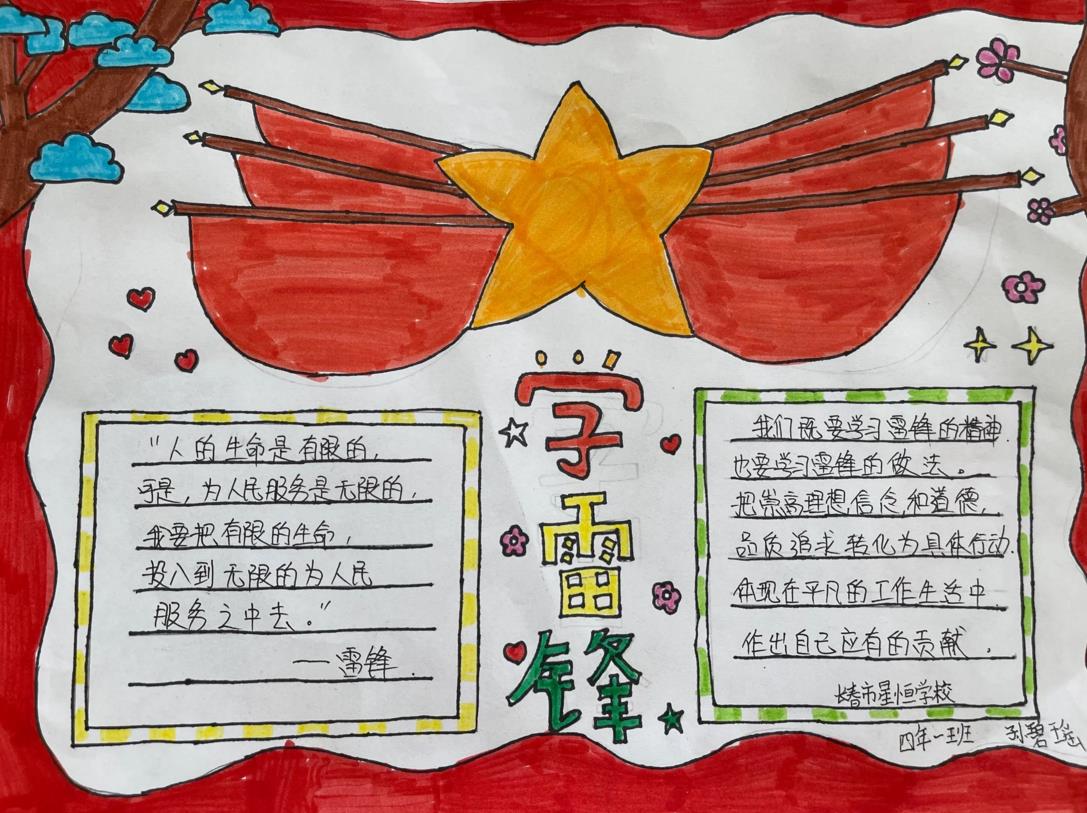 学雷锋
"人的生命是有限的，
可是，为人民服务是无限的，
我要把有限的生命，
投入到无限的为人民
服务之中去。"
——雷锋.
我们既要学习雷锋的精神
也要学习雷锋的做法。
把崇高理想信念和道德，
品质追求转化为具体行动.
体现在平凡的工作生活中
作出自己应有的贡献.
长春市星恒学校
四年一班 孙碧瑶